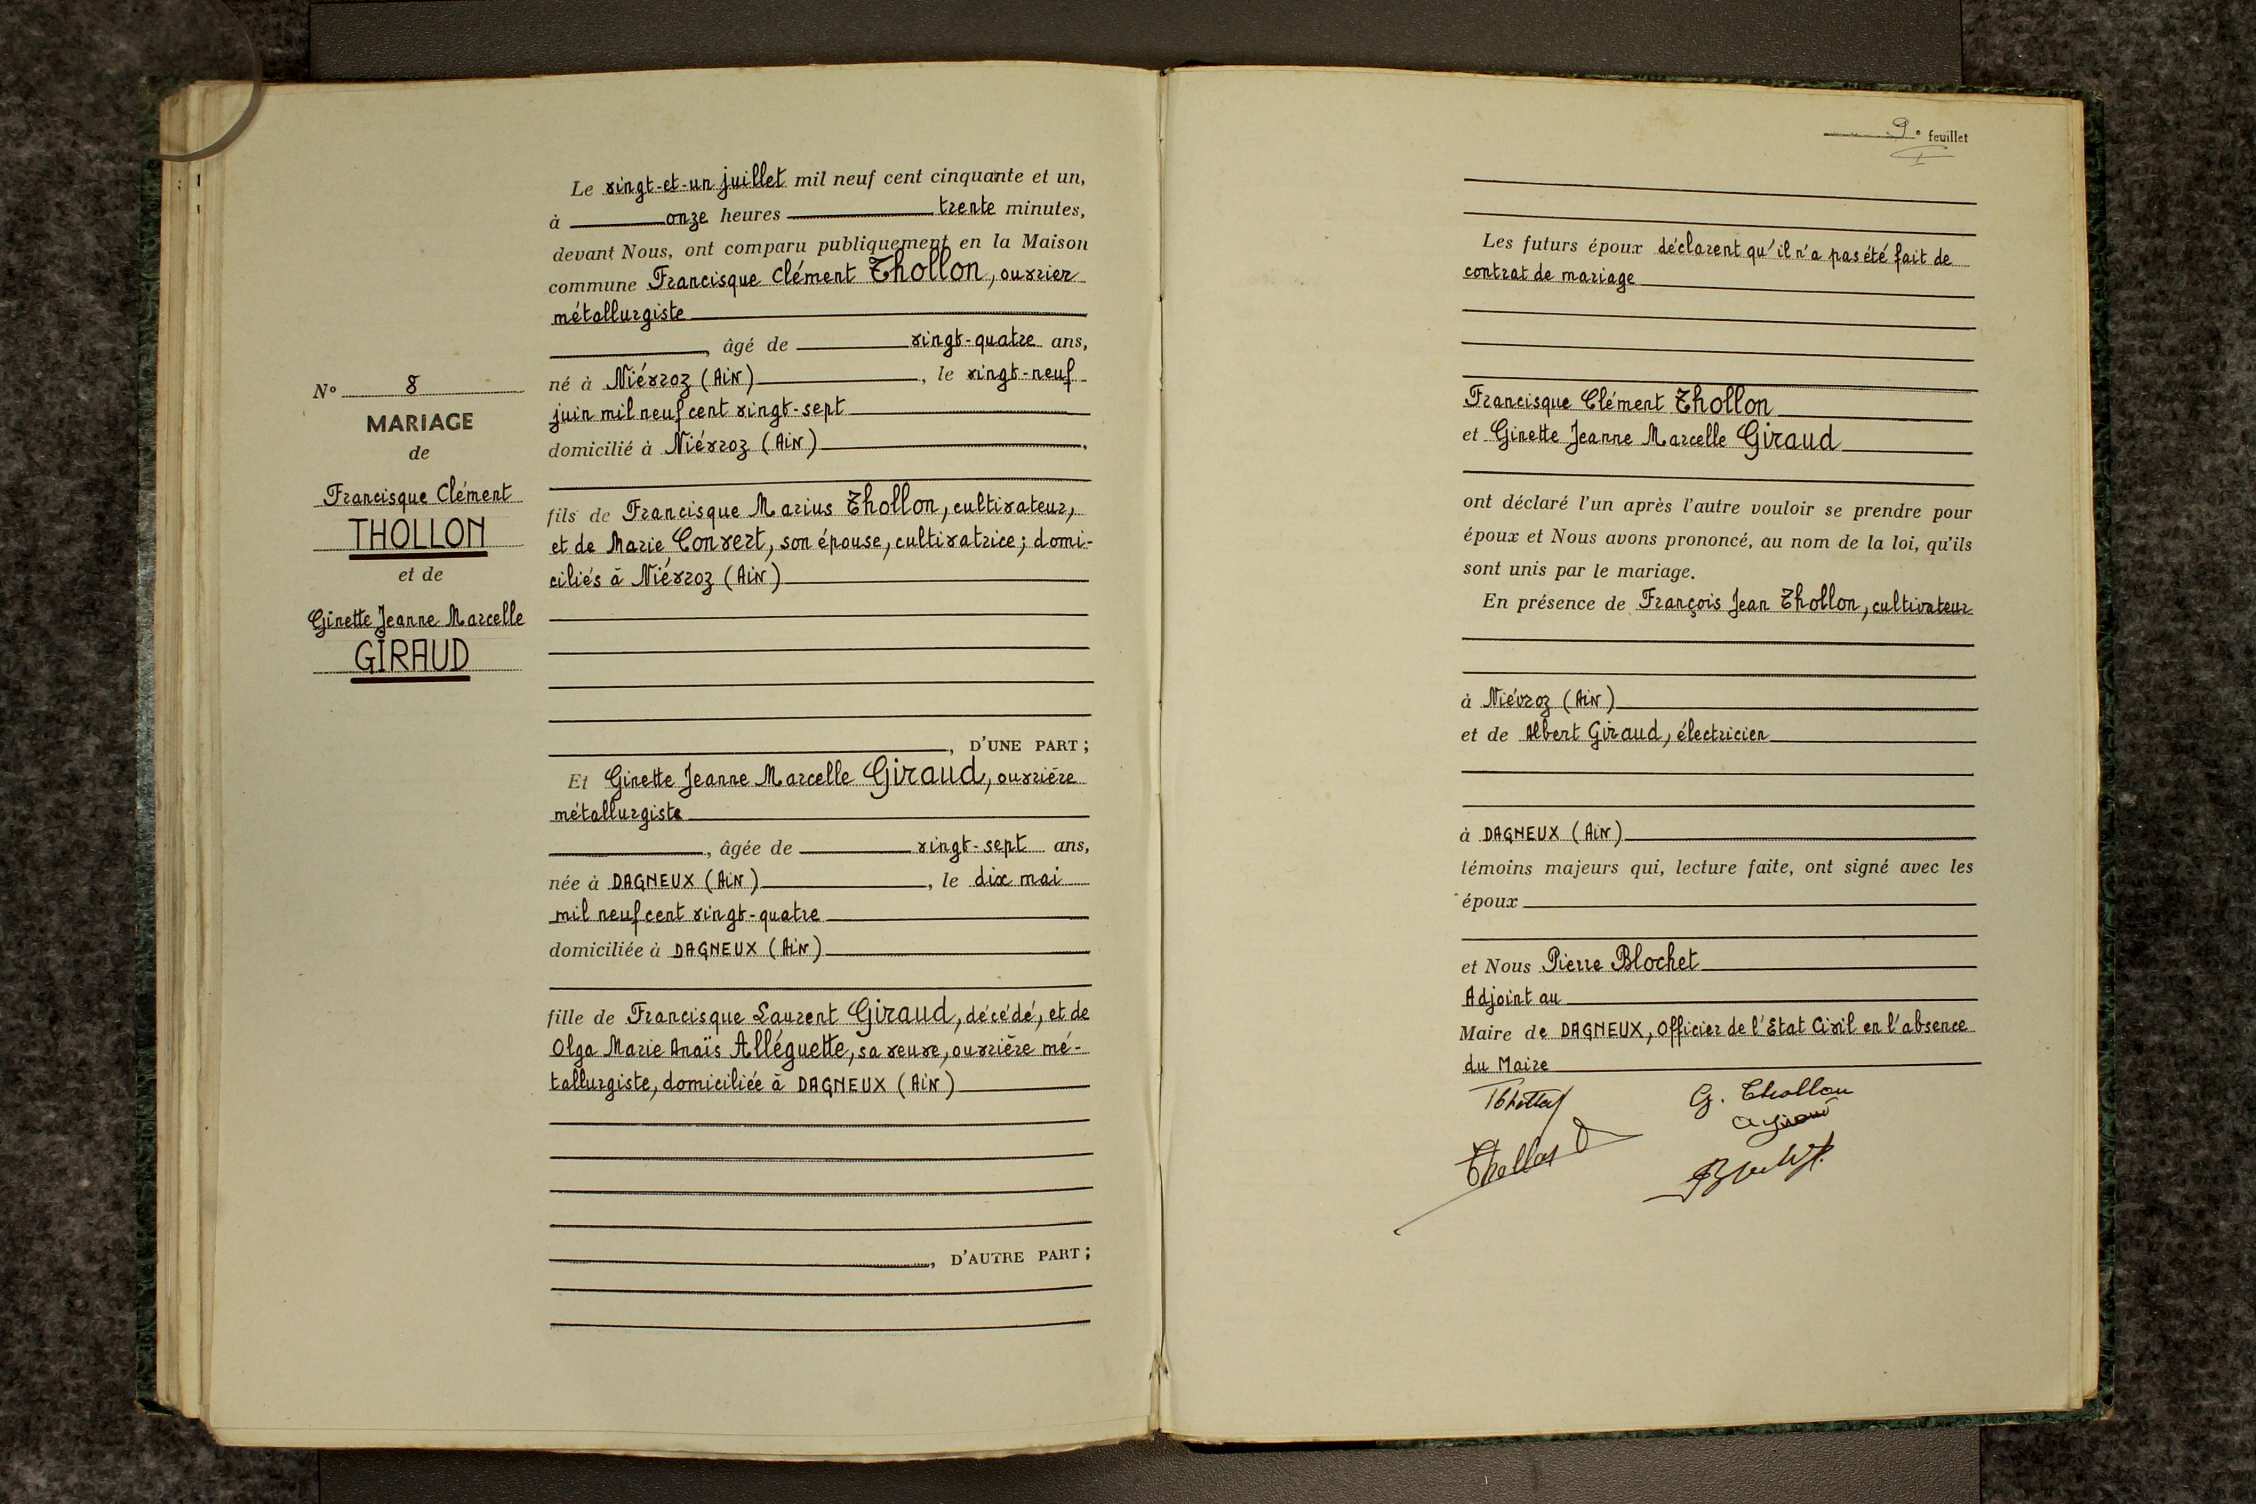 N° 8
MARIAGE
de
Francisque Clément
THOLLON
et de
Ginette Jeanne Marcelle
GIRAUD
Le vingt-et-un juillet mil neuf cent cinquante et un,
à onze heures trente minutes,
devant Nous, ont comparu publiquement en la Maison
commune Francisque Clément Thollon, ouvrier
métallurgiste
, âgé de vingt-quatre ans,
né à Niévroz (Ain), le vingt-neuf
juin mil neuf cent vingt-sept
domicilié à Niévroz (Ain).
fils de Francisque Marius Thollon, cultivateur,
et de Marie Convert, son épouse, cultivatrice; domi-
ciliés à Niévroz (Ain)
, D'UNE PART;
Et Ginette Jeanne Marcelle Giraud, ouvrière
métallurgiste
, âgée de vingt-sept ans,
née à DAGNEUX (Ain), le dix mai
mil neuf cent vingt-quatre
domiciliée à DAGNEUX (Ain)
fille de Francisque Laurent Giraud, décédé, et de
Olga Marie Anaïs Alléguette, sa veuve, ouvrière mé-
tallurgiste, domiciliée à DAGNEUX (Ain)
, D'AUTRE PART;
9e feuillet
Les futurs époux déclarent qu'il n'a pas été fait de
contrat de mariage
Francisque Clément Thollon
et Ginette Jeanne Marcelle Giraud
ont déclaré l'un après l'autre vouloir se prendre pour
époux et Nous avons prononcé, au nom de la loi, qu'ils
sont unis par le mariage.
En présence de François Jean Thollon, cultivateur
à Niévroz (Ain)
et de Albert Giraud, électricien
à DAGNEUX (Ain)
témoins majeurs qui, lecture faite, ont signé avec les
époux
et Nous Pierre Blochet
Adjoint au
Maire de DAGNEUX, Officier de l'Etat Civil en l'absence
du Maire
G. Thollon